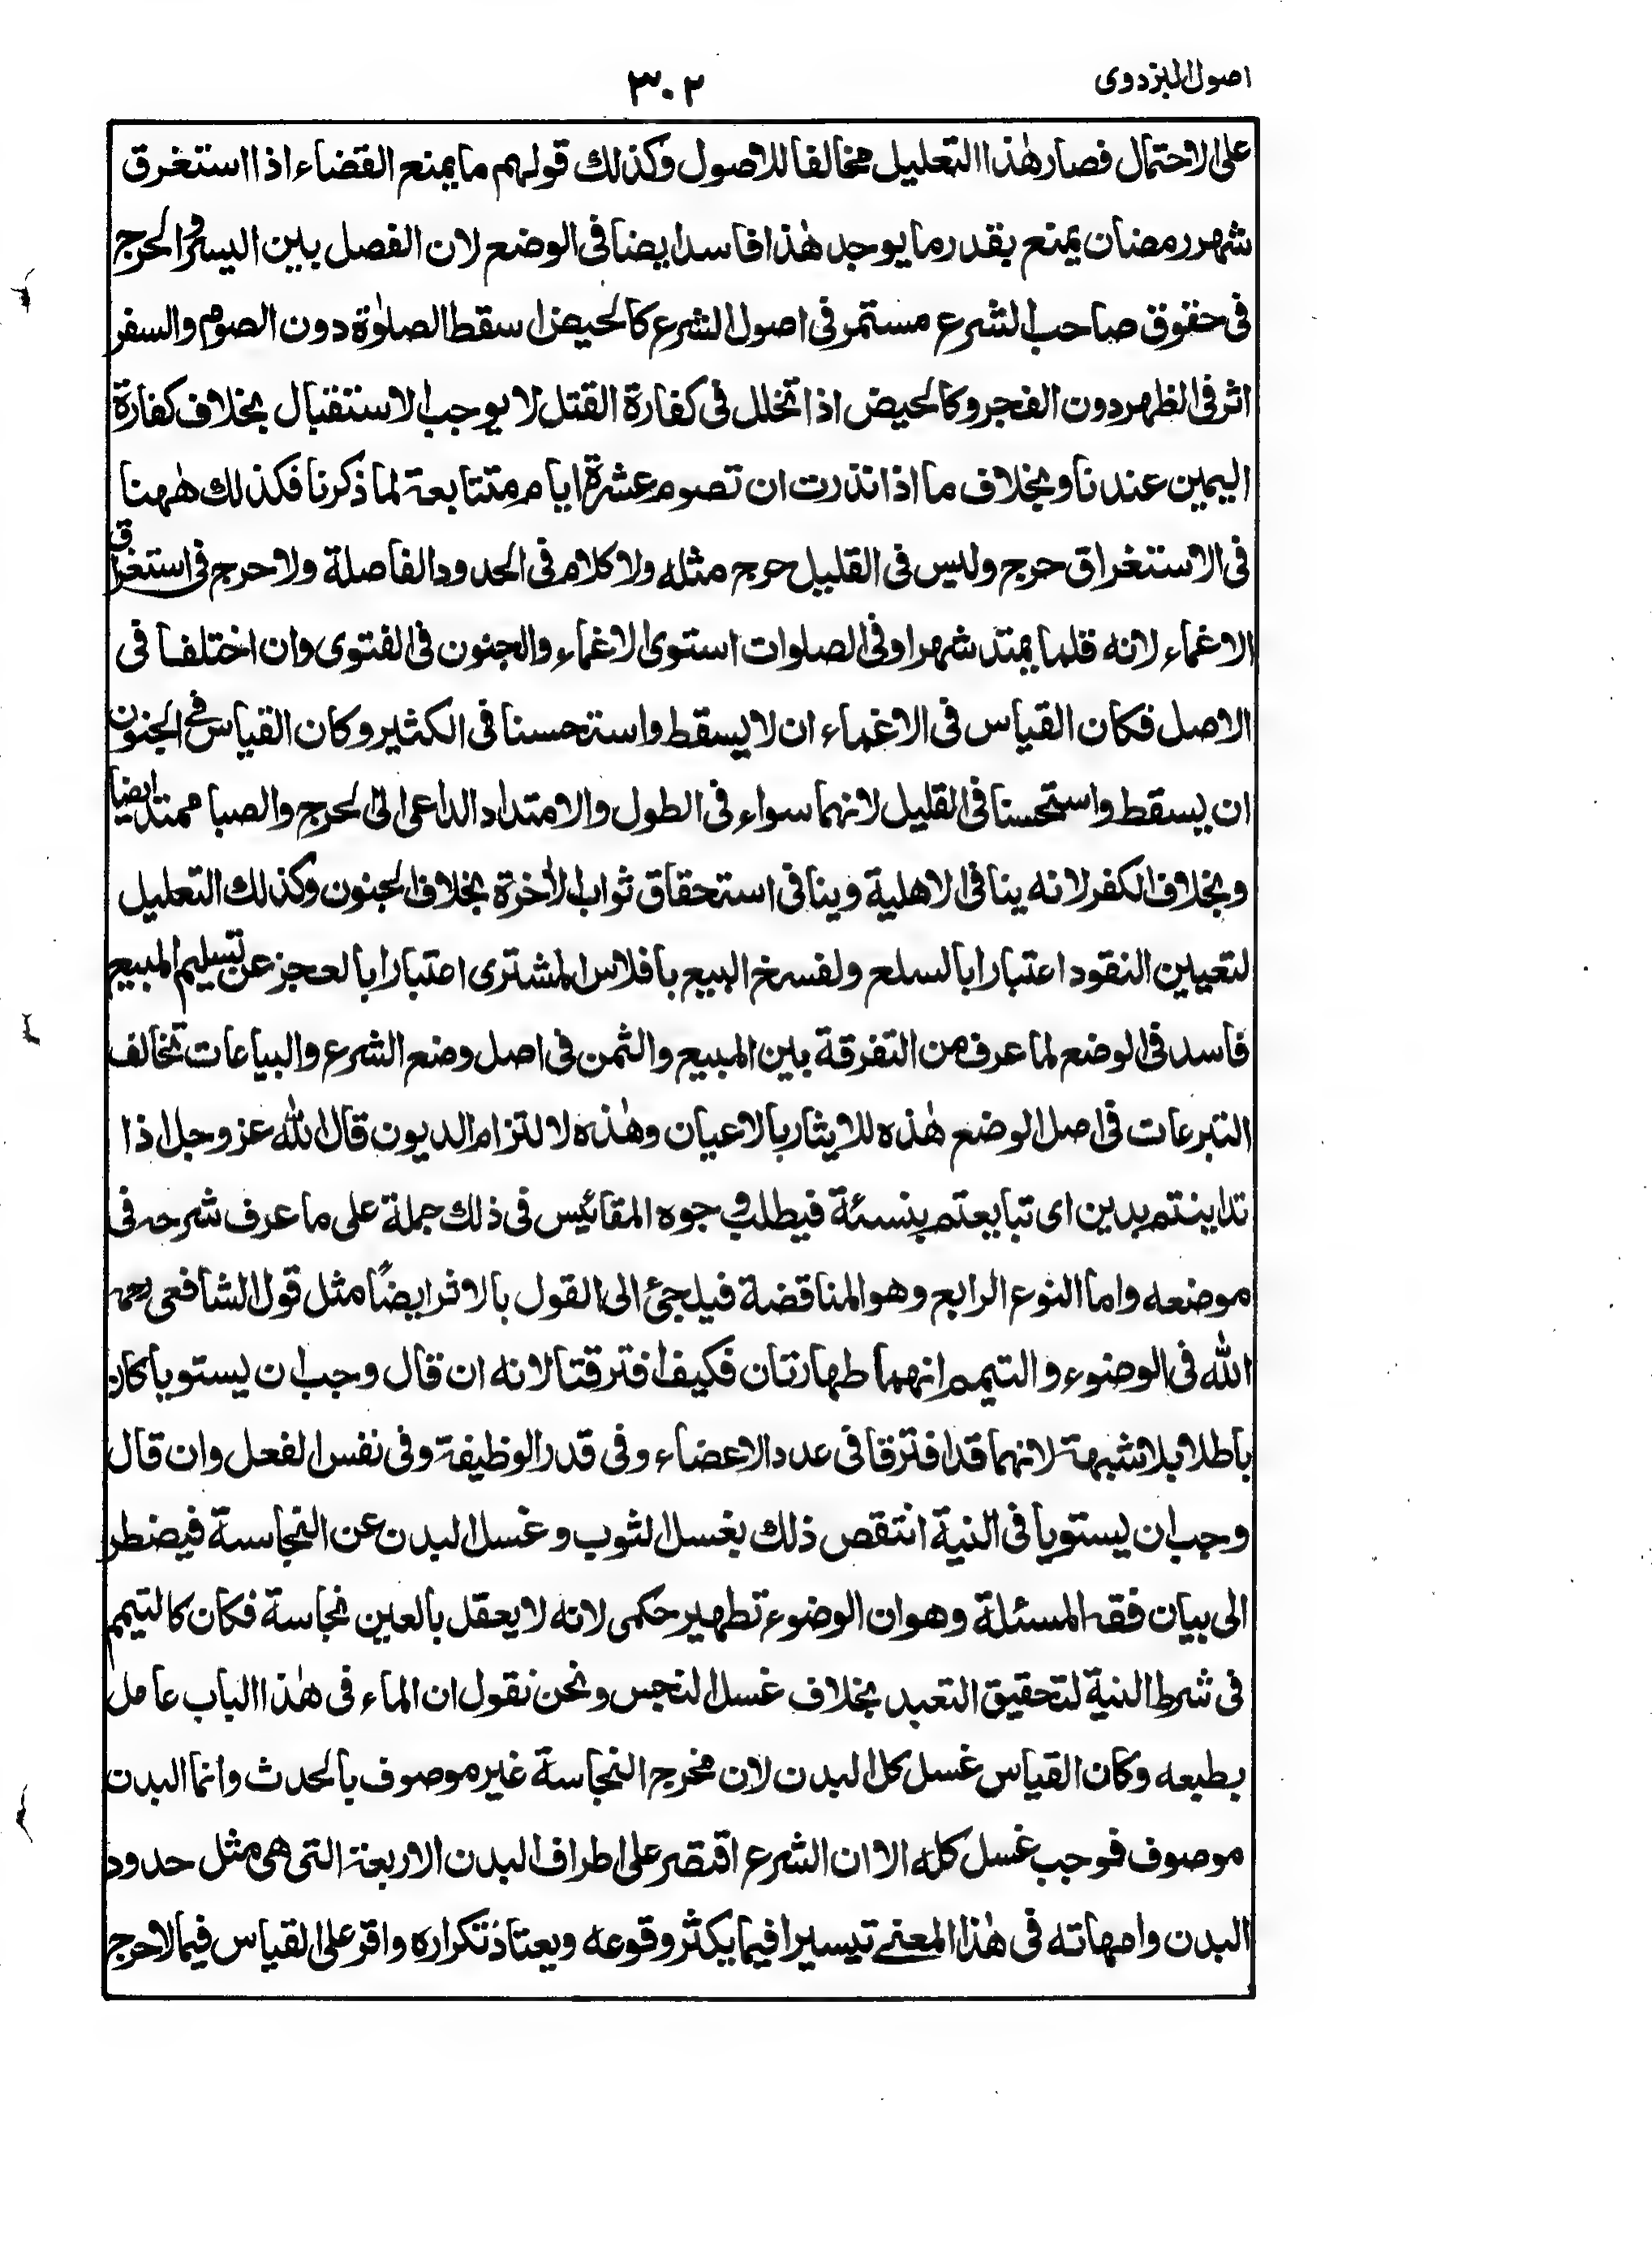 اصول البزدوی
۳۰۲
على الاحتمال فصار هٰذا التعليل مخالفا للاصول وكذلك قولهم ما يمنع القضاء اذا استغرق
شهر رمضان يمنع بقدر ما يوجد هٰذا فاسد ايضا فى الوضع لان الفصل بين اليسر والحرج
فى حقوق صاحب الشرع مستمر فى اصول الشرع كالحيض اسقط الصلوٰة دون الصوم والسفر
اثر فى الظهر دون الفجر وكالحيض اذا تخلل فى كفارة القتل لا يوجب الاستقبال بخلاف كفارة
اليمين عندنا وبخلاف ما اذا نذرت ان تصوم عشرة ايام متتابعة لما ذكرنا فكذلك هٰهنا
فى الاستغراق حرج وليس فى القليل حرج مثله ولا كلام فى الحدود الفاصلة ولا حرج فى استغراق
الاغماء لانه قلما يمتد شهرا وفى الصلوات استوى الاغماء والجنون فى الفتوى وان اختلفا فى
الاصل فكان القياس فى الاغماء ان لا يسقط واستحسنا فى الكثير وكان القياس فى الجنون
ان يسقط واستحسنا فى القليل لانهما سواء فى الطول والامتداد الداعى الى الحرج والصبا ممتد ايضا
وبخلاف الكفر لانه ينافى الاهلية وينافى استحقاق ثواب الاٰخرة بخلاف الجنون وكذلك التعليل
لتعيين النقود اعتبارا بالسلع ولفسخ البيع بافلاس المشترى اعتبارا بالعجز عن تسليم المبيع
فاسد فى الوضع لما عرف من التفرقة بين المبيع والثمن فى اصل وضع الشرع والبياعات تخالف
التبرعات فى اصل الوضع هٰذه للايثار بالاعيان وهٰذه لالتزام الديون قال الله عز وجل اذا
تداينتم بدين اى تبايعتم بنسئة فيطلب وجوه المقائيس فى ذلك جملة على ما عرف شرحه فى
موضعه واما النوع الرابع وهو المناقضة فيلجئ الى القول بالاثر ايضًا مثل قول الشافعى رحمه
الله فى الوضوء والتيمم انهما طهارتان فكيف افترقتا لانه ان قال وجب ان يستويا كان
باطلا بلا شبهة لانهما قد افترقا فى عدد الاعضاء وفى قدر الوظيفة وفى نفس الفعل وان قال
وجب ان يستويا فى النية انتقص ذلك بغسل الثوب وغسل البدن عن النجاسة فيضطر
الى بيان فقه المسئلة وهو ان الوضوء تطهير حكمى لانه لا يعقل بالعين نجاسة فكان كالتيمم
فى شرط النية لتحقيق التعبد بخلاف غسل النجس ونحن نقول ان الماء فى هٰذا الباب عامل
بطبعه وكان القياس غسل كل البدن لان مخرج النجاسة غير موصوف بالحدث وانما البدن
موصوف فوجب غسل كله الا ان الشرع اقتصر على اطراف البدن الاربعة التى هى مثل حدود
البدن وامهاته فى هٰذا المعنى تيسيرا فيما يكثر وقوعه ويعتاد تكراره واقر على القياس فيما لا حرج